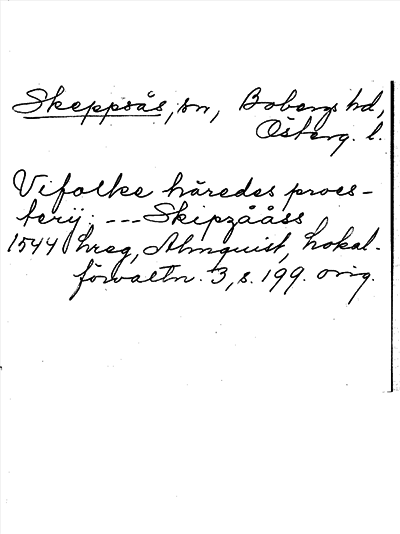 Skeppsås, sn, Bobergs hd,
Österg. l.
Vifolke häredes proes-
terij. --- Skipzååss
1544 hreg, Almquist, Lokal-
förvaltn. 3, s. 199. orig.